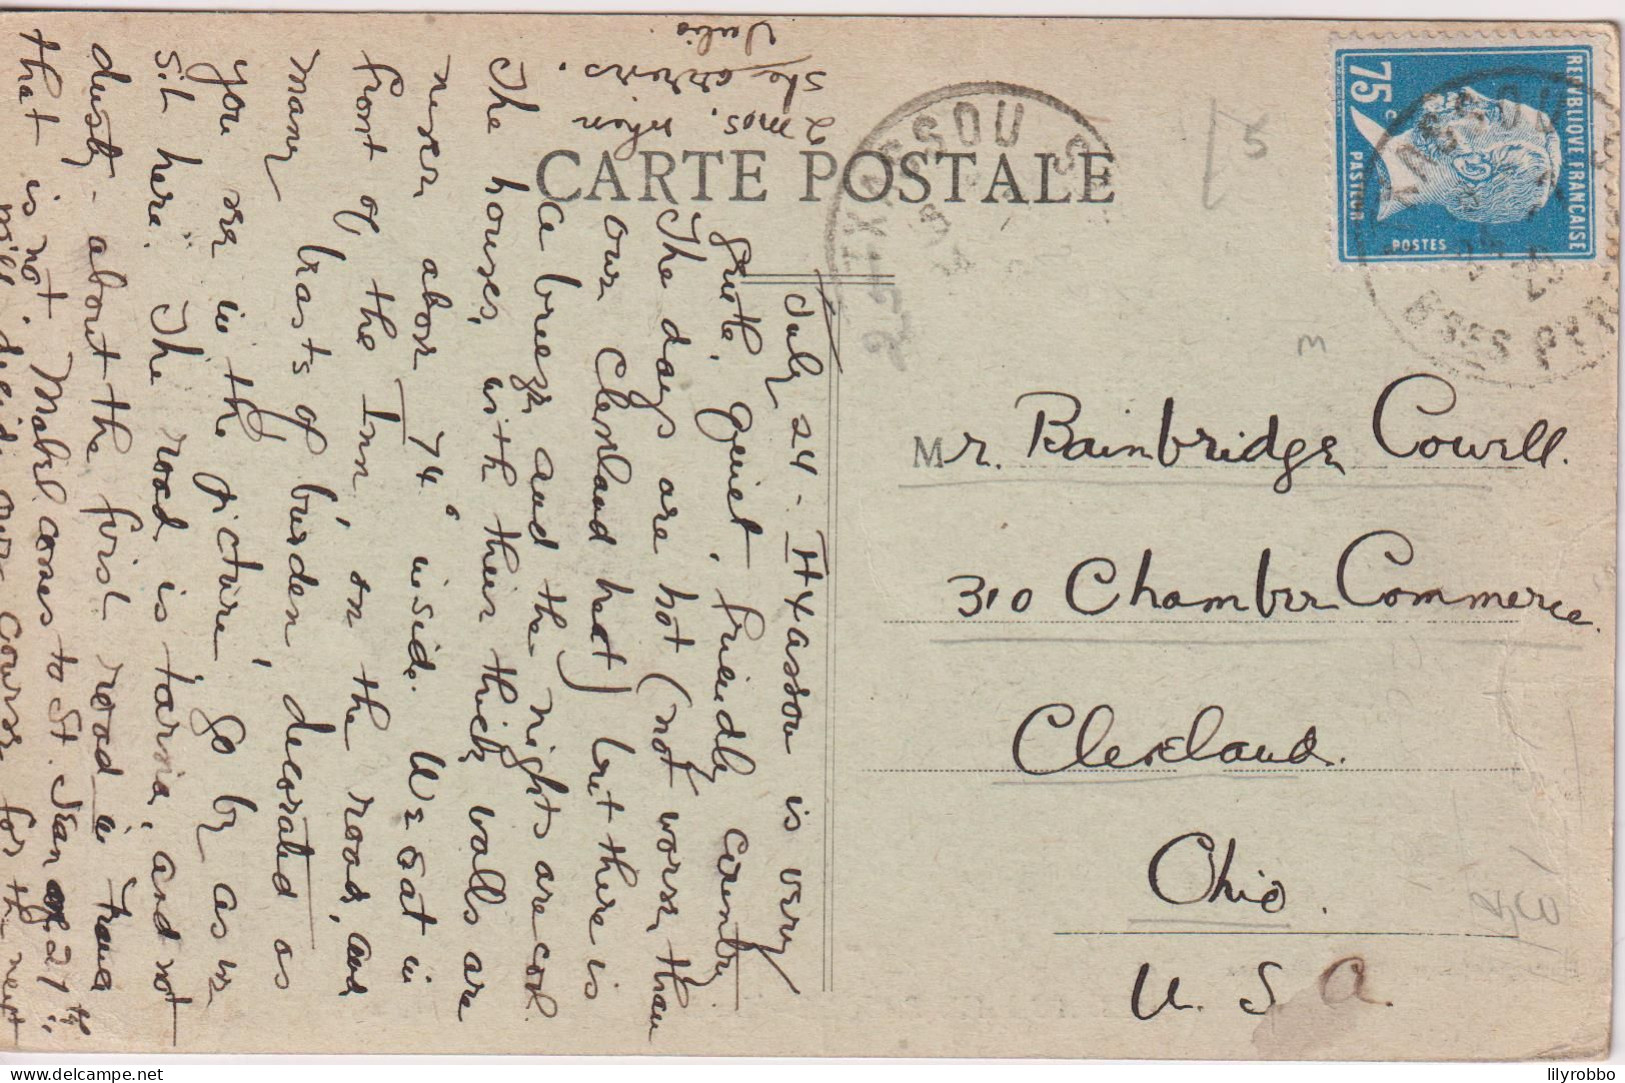 CARTE POSTALE
REPVBLIQVE FRANCAISE
75c
PASTEVR
POSTES
ITXASSOU
BSSES PYRE
July 24 - Itxassou is very
quiet, friendly country
The days are hot (not worse than
our Cleveland heat) but there is
a breeze and the nights are cool.
The houses, with their thick walls are
never above 74° inside. We eat in
front of the Inn, on the road, and
many beasts of burden, decorated as
you see in the picture, go by as we
sit here. The road is tarvia, and not
dusty - about the first road in France
that is not. Mabel comes to St. Jean 27th;
we'll decide our course for the next
2 mos. when
she arrives.
Julie.
Mr. Bainbridge Cowell.
310 Chamber Commerce
Cleveland.
Ohio.
U. S. A.
lilyrobbo